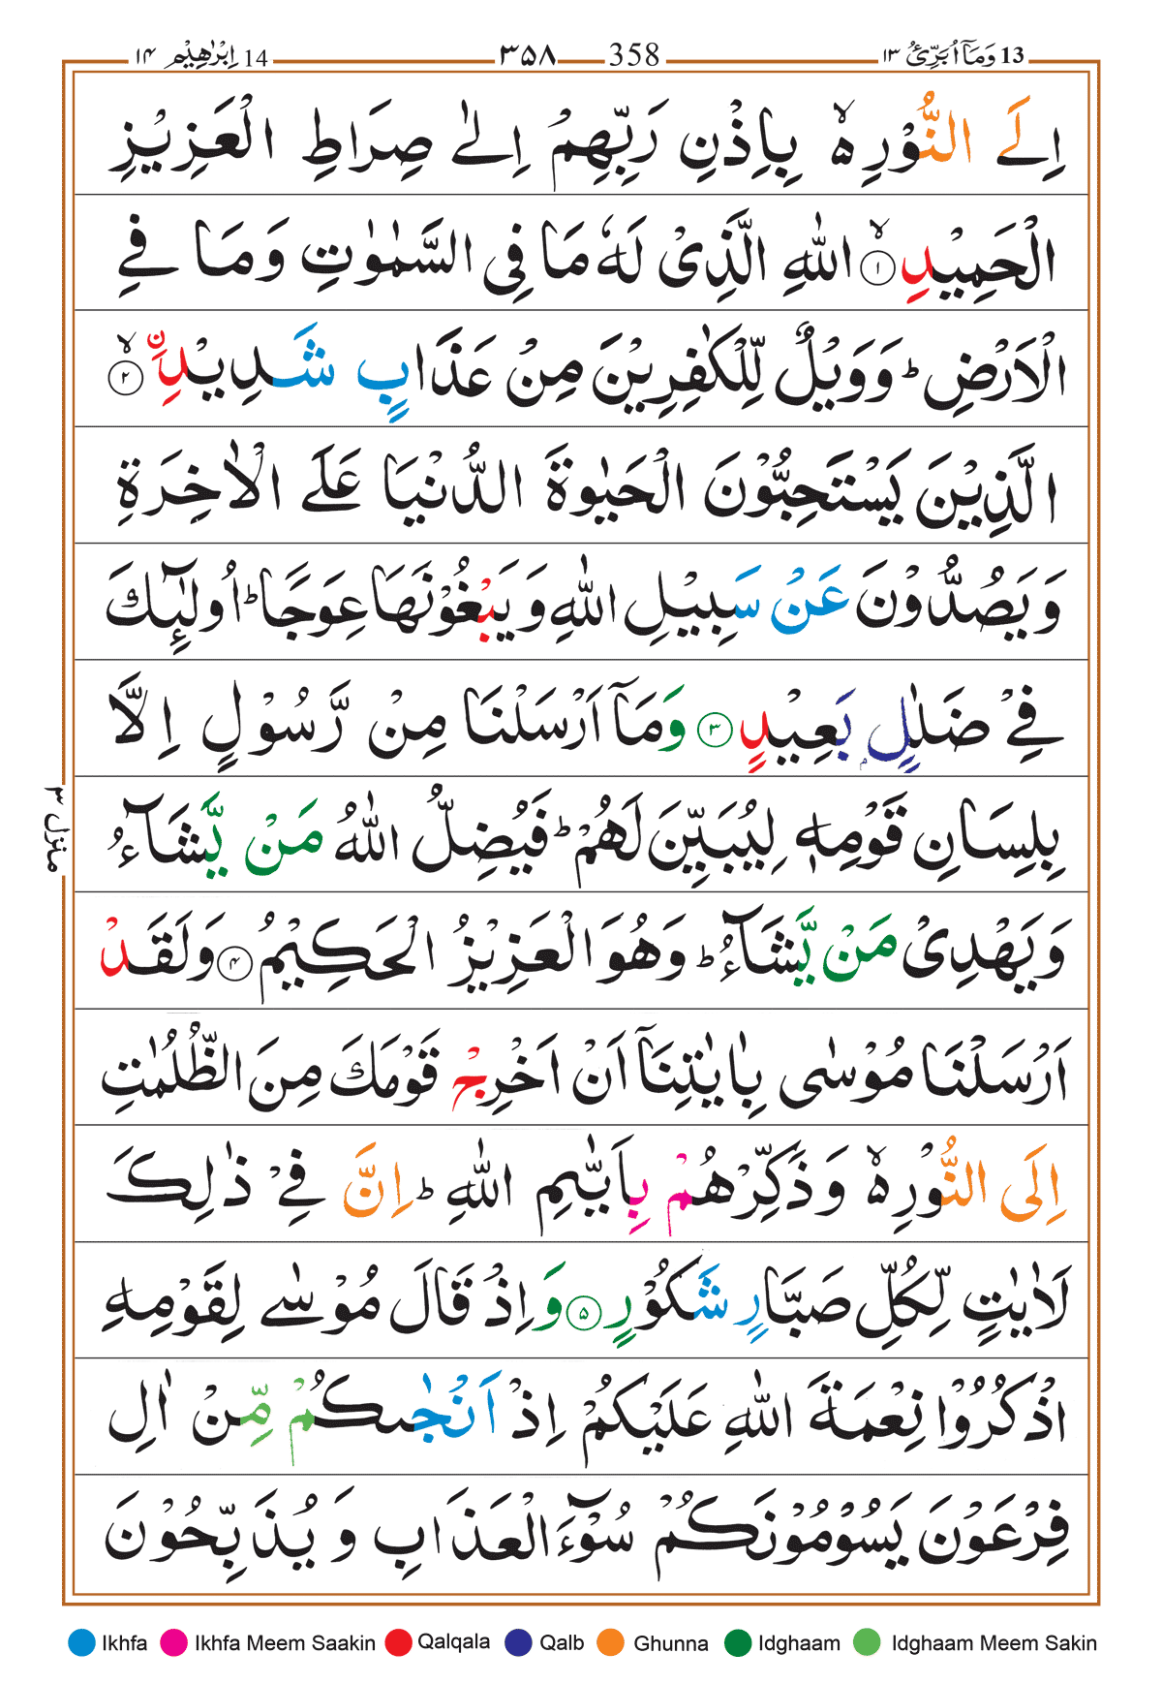 13 وَمَآ اُبَرِّئُ ۱۳ 358 ۳۵۸ 14 اِبْرٰهِیْم ۱۴
اِلَی النُّوْرِ ۙ۬ بِاِذْنِ رَبِّهِمْ اِلٰی صِرَاطِ الْعَزِیْزِ
الْحَمِیْدِ ۙ﴿۱﴾ اللّٰهِ الَّذِیْ لَهٗ مَا فِی السَّمٰوٰتِ وَمَا فِی
الْاَرْضِ ؕ وَوَیْلٌ لِّلْکٰفِرِیْنَ مِنْ عَذَابٍ شَدِیْدِ ۣۙ﴿۲﴾
الَّذِیْنَ یَسْتَحِبُّوْنَ الْحَیٰوةَ الدُّنْیَا عَلَی الْاٰخِرَةِ
وَیَصُدُّوْنَ عَنْ سَبِیْلِ اللّٰهِ وَیَبْغُوْنَهَا عِوَجًا ؕ اُولٰٓئِکَ
فِیْ ضَلٰلٍۭ بَعِیْدٍ ﴿۳﴾ وَمَآ اَرْسَلْنَا مِنْ رَّسُوْلٍ اِلَّا
بِلِسَانِ قَوْمِهٖ لِیُبَیِّنَ لَهُمْ ؕ فَیُضِلُّ اللّٰهُ مَنْ یَّشَآءُ
وَیَهْدِیْ مَنْ یَّشَآءُ ؕ وَهُوَ الْعَزِیْزُ الْحَکِیْمُ ﴿۴﴾ وَلَقَدْ
اَرْسَلْنَا مُوْسٰی بِاٰیٰتِنَآ اَنْ اَخْرِجْ قَوْمَکَ مِنَ الظُّلُمٰتِ
اِلَی النُّوْرِ ۙ۬ وَذَکِّرْهُمْ بِاَیّٰىمِ اللّٰهِ ؕ اِنَّ فِیْ ذٰلِکَ
لَاٰیٰتٍ لِّکُلِّ صَبَّارٍ شَکُوْرٍ ﴿۵﴾ وَاِذْ قَالَ مُوْسٰی لِقَوْمِهِ
اذْکُرُوْا نِعْمَةَ اللّٰهِ عَلَیْکُمْ اِذْ اَنْجٰىکُمْ مِّنْ اٰلِ
فِرْعَوْنَ یَسُوْمُوْنَکُمْ سُوْٓءَ الْعَذَابِ وَیُذَبِّحُوْنَ
منزل ۳
Ikhfa Ikhfa Meem Saakin Qalqala Qalb Ghunna Idghaam Idghaam Meem Sakin